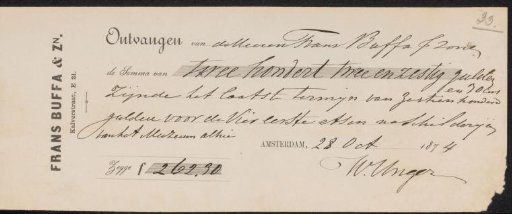 93.
FRANS BUFFA & ZN.
Kalverstraat, E 21.
Ontvangen van de Heeren Frans Buffa & zonen
de Somma van twee hondert twee en zestig gulden
en 30 Cens
Zijnde het laatste termijn van Zestien hondert
gulden voor de Vier eerste etsen na schilderijen
van het Museum alhier
AMSTERDAM, 28 Oct 1874
Zegge f 262,30
W. Unger